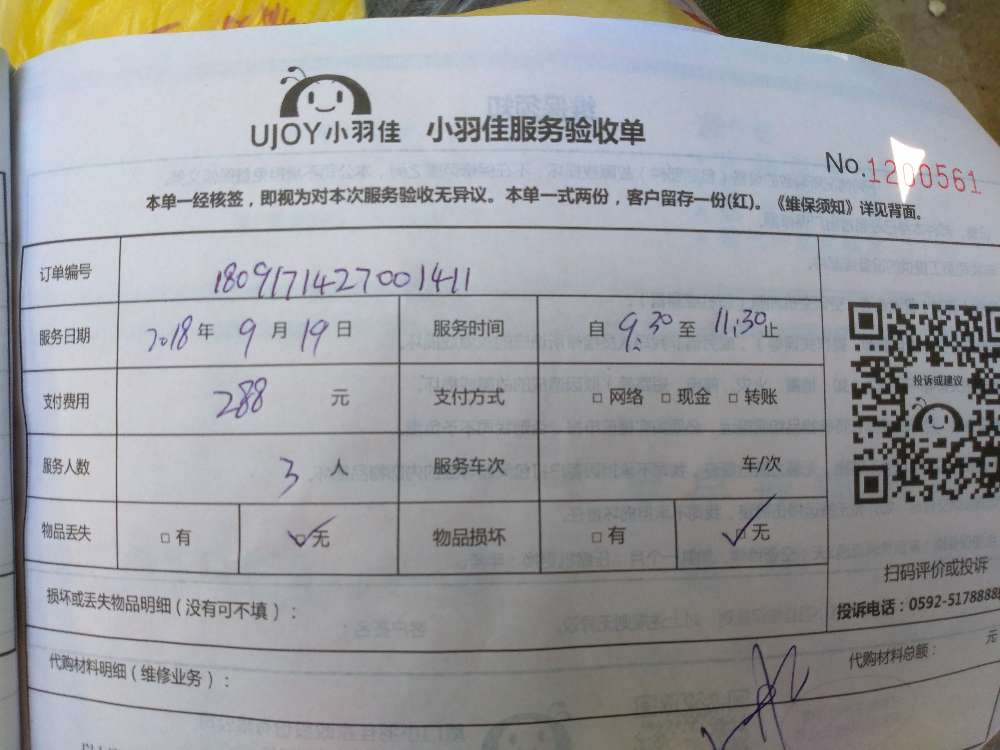 UJOY小羽佳 小羽佳服务验收单
No.1200561
本单一经核签，即视为对本次服务验收无异议。本单一式两份，客户留存一份(红)。《维保须知》详见背面。
订单编号 1809171427001411
服务日期 2018年 9月 19日 服务时间 自 9:30 至 11:30止
支付费用 288 元 支付方式 □网络 □现金 □转账
投诉或建议
服务人数 3 人 服务车次 车/次
物品丢失 □有 ☑无 物品损坏 □有 ☑无
扫码评价或投诉
损坏或丢失物品明细（没有可不填）：
投诉电话：0592-5178888
代购材料明细（维修业务）：
代购材料总额： 元